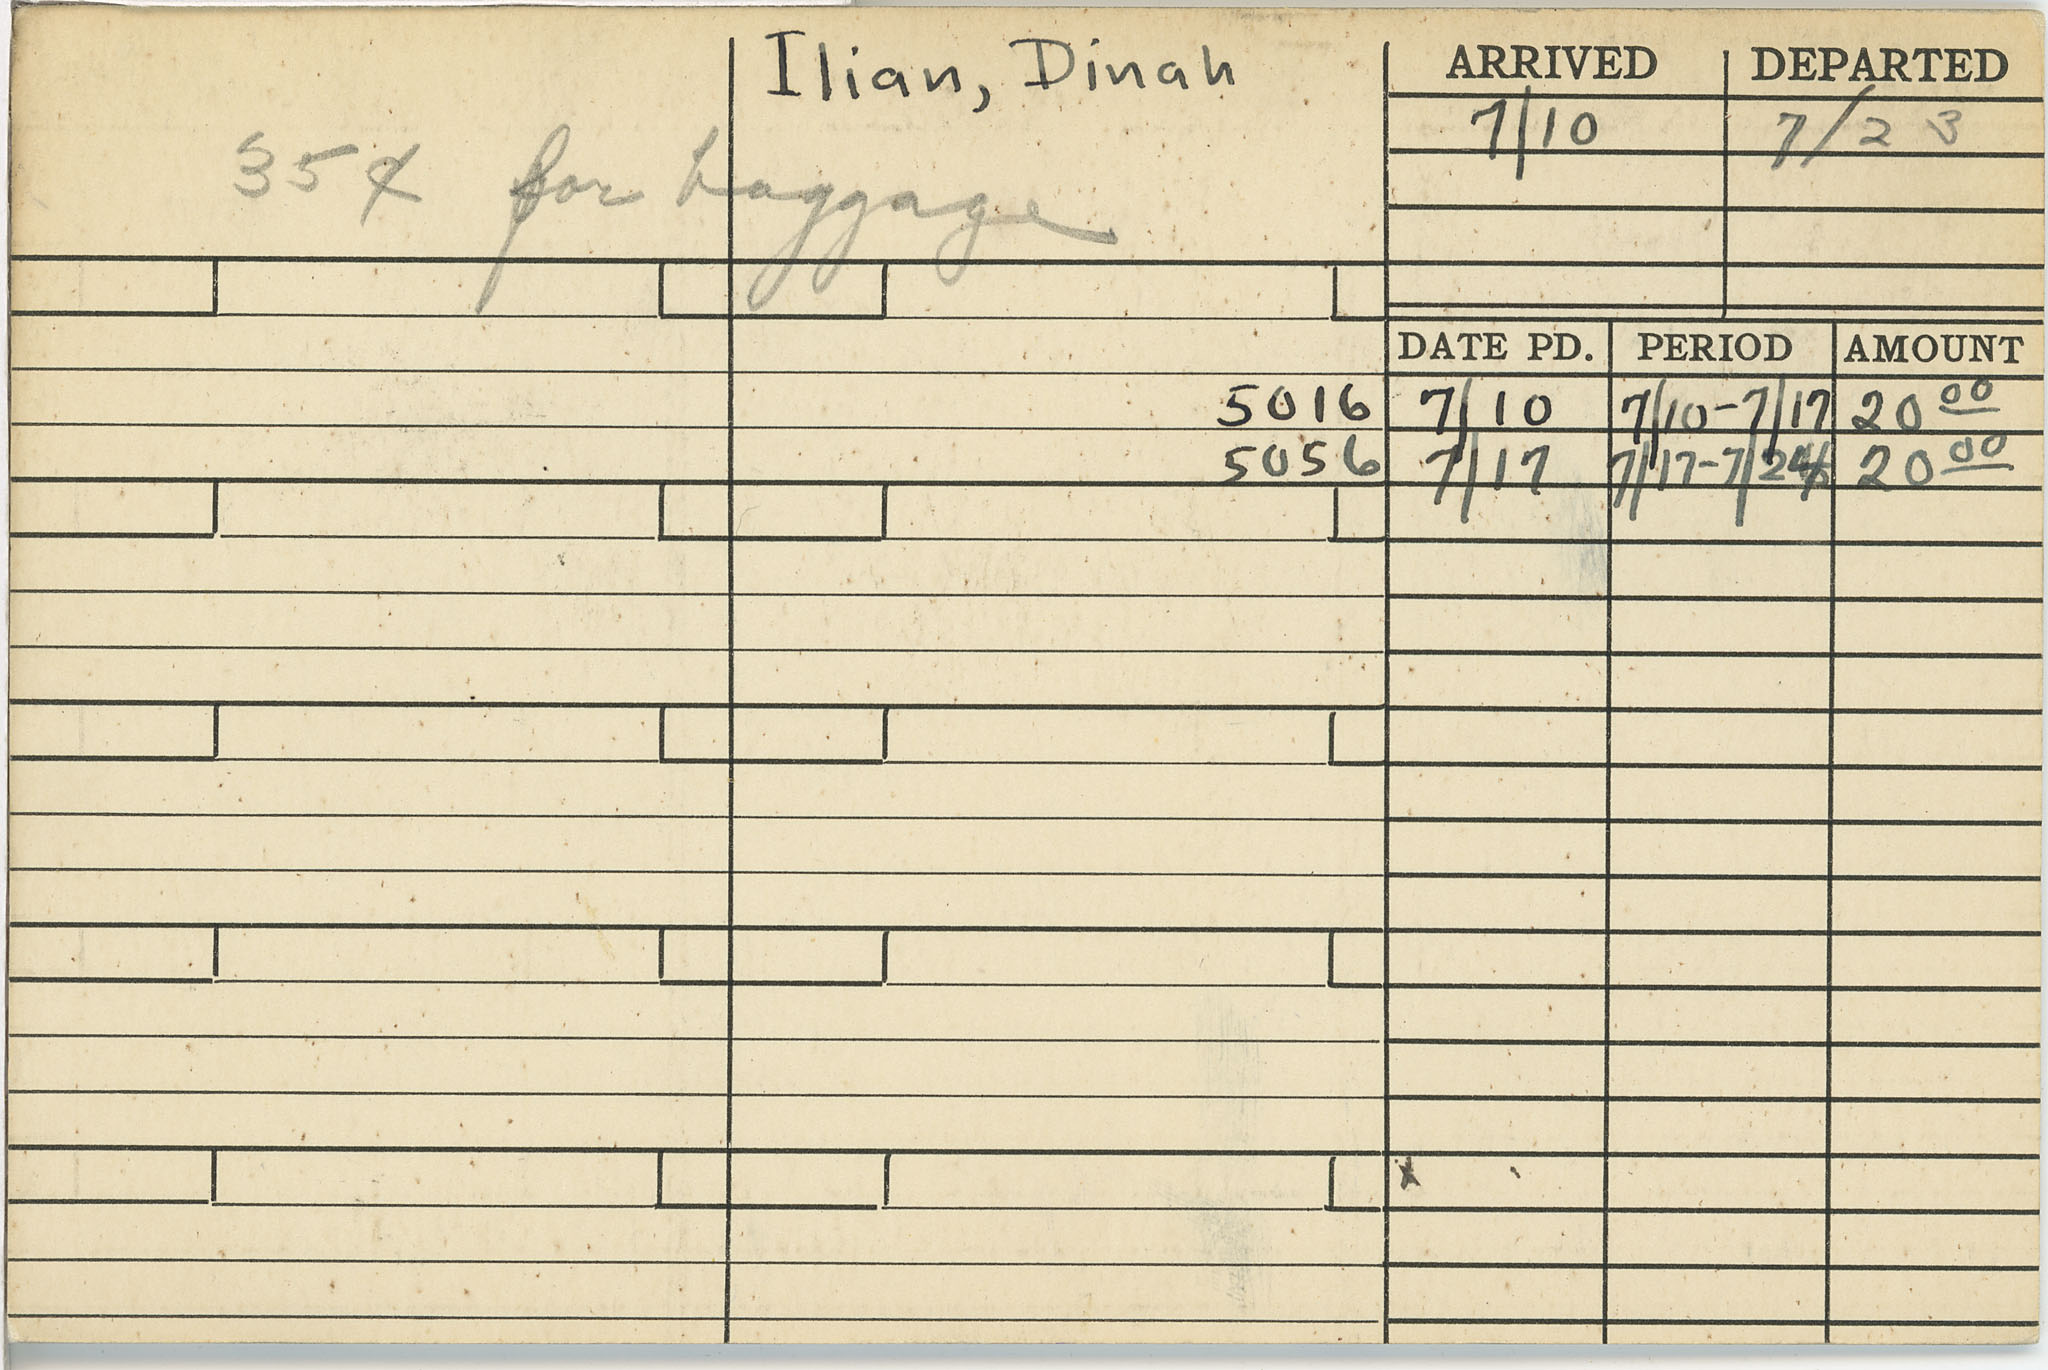 Ilian, Dinah
35¢ for baggage
ARRIVED DEPARTED
7/10 7/23
DATE PD. PERIOD AMOUNT
5016 7/10 7/10-7/17 20 00
5056 7/17 7/17-7/24 20 00
x